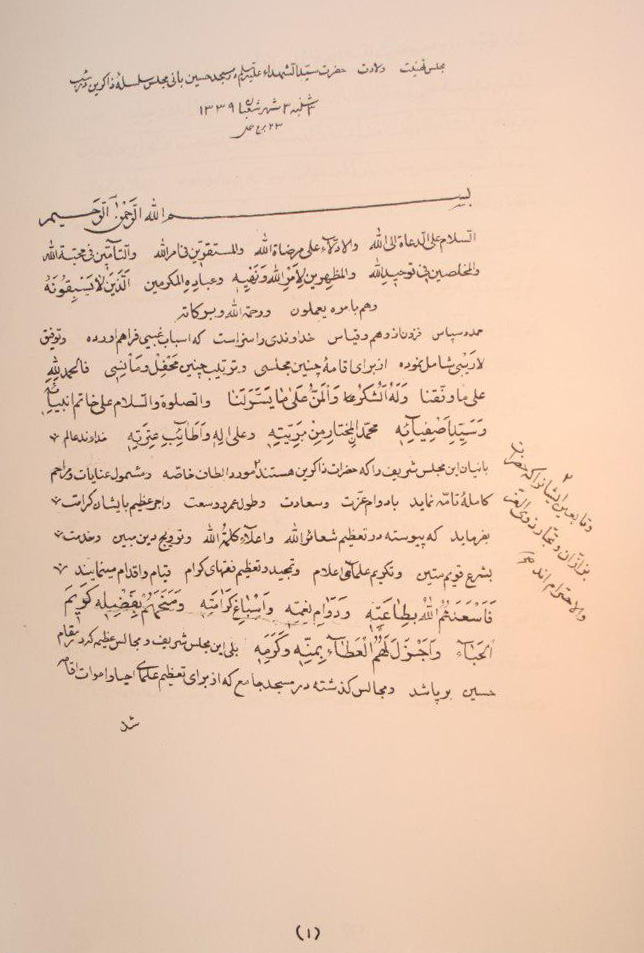 مجلس تهنیت ولادت حضرت سیدالشهداء علیه السلام در مسجد حسین بانی مجلس سلسلهٔ ذاکرین
۳شنبه ۳ شهر شعبان ۱۳۳۹
۲۳ برج حمل
بسم الله الرحمن الرحیم
السلام علی الدعاة الی الله والادلاء علی مرضاة الله والمستقرین فی امر الله والتامین فی محبة الله
والمخلصین فی توحید الله والمظهرین لامر الله ونهیه وعباده المکرمین الذین لا یسبقونه
وهم بامره یعملون ورحمة الله وبرکاته
حمد و سپاس فزون از وهم و قیاس خداوندی را سزاست که اسباب غیبی فراهم آورده و توفیق
لاریبی شامل نموده از برای اقامهٔ چنین مجلسی و ترتیب چنین محفل و مأنسی فالحمد لله
علی ما وفقنا وله الشکر والمن علی ما یسر لنا والصلوة والسلام علی خاتم انبیائه
وسید اصفیائه محمد المختار من بریته وعلی اله واطائب عترته خداوند عالم
بانیان این مجلس شریف را که حضرات ذاکرین هستند ۲ مورد الطاف خاصه و مشمول عنایات و مراحم
کاملهٔ تامه نماید بادوام عزت و سعادت و طول عمر و وسعت و اجر عظیم بایشان کرامت
بفرماید که پیوسته در تعظیم شعائر الله و اعلاء کلمة الله و ترویج دین مبین و خدمت
بشرع قویم متین و تکریم علمای اعلام و تمجید و تعظیم فقهای کرام قیام و اقدام مینمایند
فاسعدهم الله بطاعته ودوام نعمته واسباغ کرامته ومنحهم بفضله کریم
الحباء واجزل لهم العطاء بمنه وکرمه بلی این مجلس شریف و مجالس عظیمه که در مقام
حسین برپا شد و مجالس گذشته در مسجد جامع که از برای تعظیم علمای احیا و اموات اقامه
شد
۲
و تابعین ایشانرا که حضرات
بزازان و تجار ذوی العز
والاحترام اند
(۱)